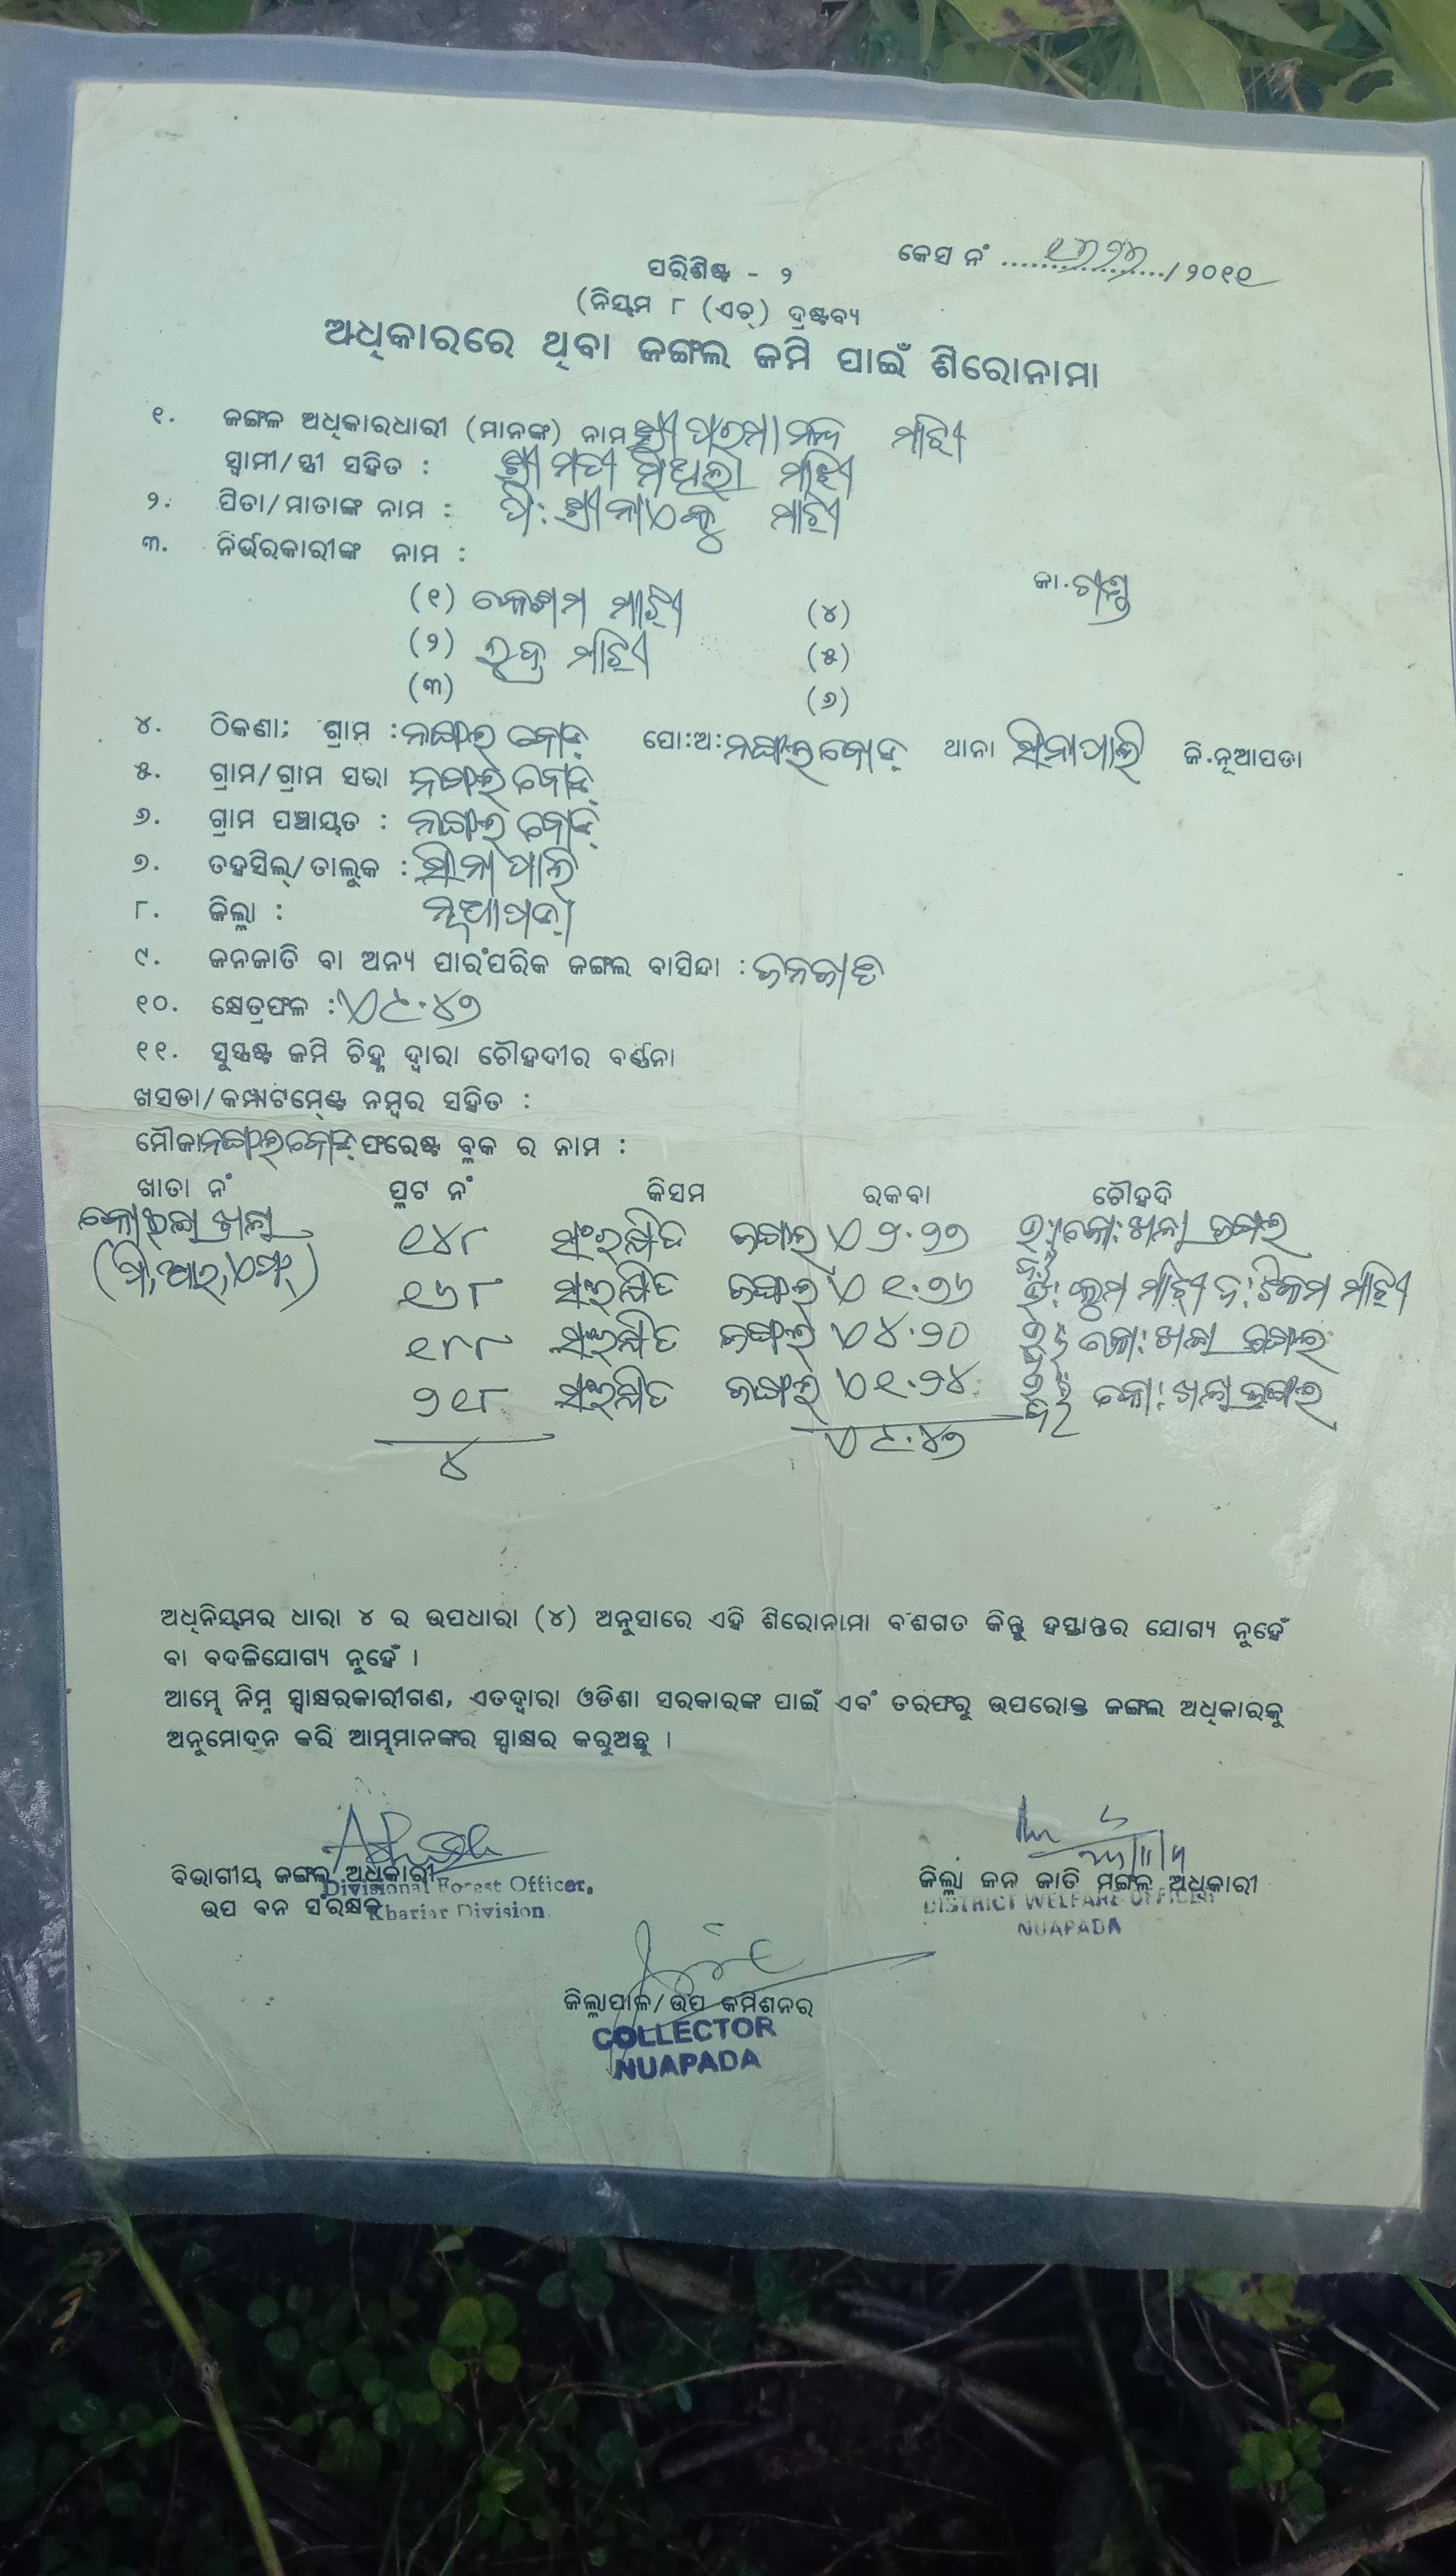 କେସ ନଂ ................/୨୦୧୧
ପରିଶିଷ୍ଟ - ୨
(ନିୟମ ୮ (ଏଚ୍) ଦ୍ରଷ୍ଟବ୍ୟ
ଅଧିକାରରେ ଥିବା ଜଙ୍ଗଲ ଜମି ପାଇଁ ଶିରୋନାମା
୧. ଜଙ୍ଗଳ ଅଧିକାରଧାରୀ (ମାନଙ୍କ) ନାମ ଶ୍ରୀ ପରମାନନ୍ଦ ମାଝୀ
ସ୍ୱାମୀ/ସ୍ତ୍ରୀ ସହିତ : ଶ୍ରୀମତୀ ମାଝୀ
୨. ପିତା/ମାତାଙ୍କ ନାମ : ପି: ଶ୍ରୀ ମାଝୀ
୩. ନିର୍ଭରକାରୀଙ୍କ ନାମ :
କା. ଗଣ୍ଡ
(୧) ମାଝୀ (୪)
(୨) ମାଝୀ (୫)
(୩) (୬)
୪. ଠିକଣା; ଗ୍ରାମ : ନଙ୍ଗଲବୋଡ୍ ପୋ:ଅ: ନଙ୍ଗଲବୋଡ୍ ଥାନା ସିନାପାଲି ଜି.ନୂଆପଡା
୫. ଗ୍ରାମ/ଗ୍ରାମ ସଭା ନଙ୍ଗଲବୋଡ୍
୬. ଗ୍ରାମ ପଞ୍ଚାୟତ : ନଙ୍ଗଲବୋଡ୍
୭. ତହସିଲ୍/ତାଲୁକ : ସିନାପାଲି
୮. ଜିଲ୍ଲା : ନୂଆପଡା
୯. ଜନଜାତି ବା ଅନ୍ୟ ପାରଂପରିକ ଜଙ୍ଗଲ ବାସିନ୍ଦା : ଜନଜାତି
୧୦. କ୍ଷେତ୍ରଫଳ : ଏ ୯.୪୭
୧୧. ସୁସ୍ପଷ୍ଟ ଜମି ଚିହ୍ନ ଦ୍ୱାରା ଚୌହଦୀର ବର୍ଣ୍ଣନା
ଖସଡା/କମ୍ପାଟମେଣ୍ଟ ନମ୍ବର ସହିତ :
ମୌଜା ନଙ୍ଗଲବୋଡ୍ ଫରେଷ୍ଟ ବ୍ଲକ ର ନାମ :
ଖାତା ନଂ ପ୍ଲଟ ନଂ କିସମ ରକବା ଚୌହଦି
୧୪୮ ସଂରକ୍ଷିତ ଜଙ୍ଗଲ ଏ ୨.୨୭ ଜଙ୍ଗଲ
୧୬୮ ସଂରକ୍ଷିତ ଜଙ୍ଗଲ ଏ ୧.୭୬ ମାଝୀ ଦ: ଟିକମ ମାଝୀ
୧୮୮ ସଂରକ୍ଷିତ ଜଙ୍ଗଲ ଏ ୪.୨୦ ଜଙ୍ଗଲ
୨୧୮ ସଂରକ୍ଷିତ ଜଙ୍ଗଲ ଏ ୧.୨୪ ଜଙ୍ଗଲ
୪ ଏ ୯.୪୭
ଅଧିନିୟମର ଧାରା ୪ ର ଉପଧାରା (୪) ଅନୁସାରେ ଏହି ଶିରୋନାମା ବଂଶଗତ କିନ୍ତୁ ହସ୍ତାନ୍ତର ଯୋଗ୍ୟ ନୁହେଁ
ବା ବଦଳିଯୋଗ୍ୟ ନୁହେଁ ।
ଆମ୍ଭେ ନିମ୍ନ ସ୍ୱାକ୍ଷରକାରୀଗଣ, ଏତଦ୍ୱାରା ଓଡିଶା ସରକାରଙ୍କ ପାଇଁ ଏବଂ ତରଫରୁ ଉପରୋକ୍ତ ଜଙ୍ଗଲ ଅଧିକାରକୁ
ଅନୁମୋଦନ କରି ଆମ୍ଭମାନଙ୍କର ସ୍ୱାକ୍ଷର କରୁଅଛୁ ।
ବିଭାଗୀୟ ଜଙ୍ଗଲ ଅଧିକାରୀ
Divisional Forest Officer,
ଉପ ବନ ସଂରକ୍ଷକ
Khariar Division
ଜିଲ୍ଲା ଜନ ଜାତି ମଙ୍ଗଳ ଅଧିକାରୀ
DISTRICT WELFARE OFFICER
NUAPADA
ଜିଲ୍ଲାପାଳ/ଉପ କମିଶନର
COLLECTOR
NUAPADA